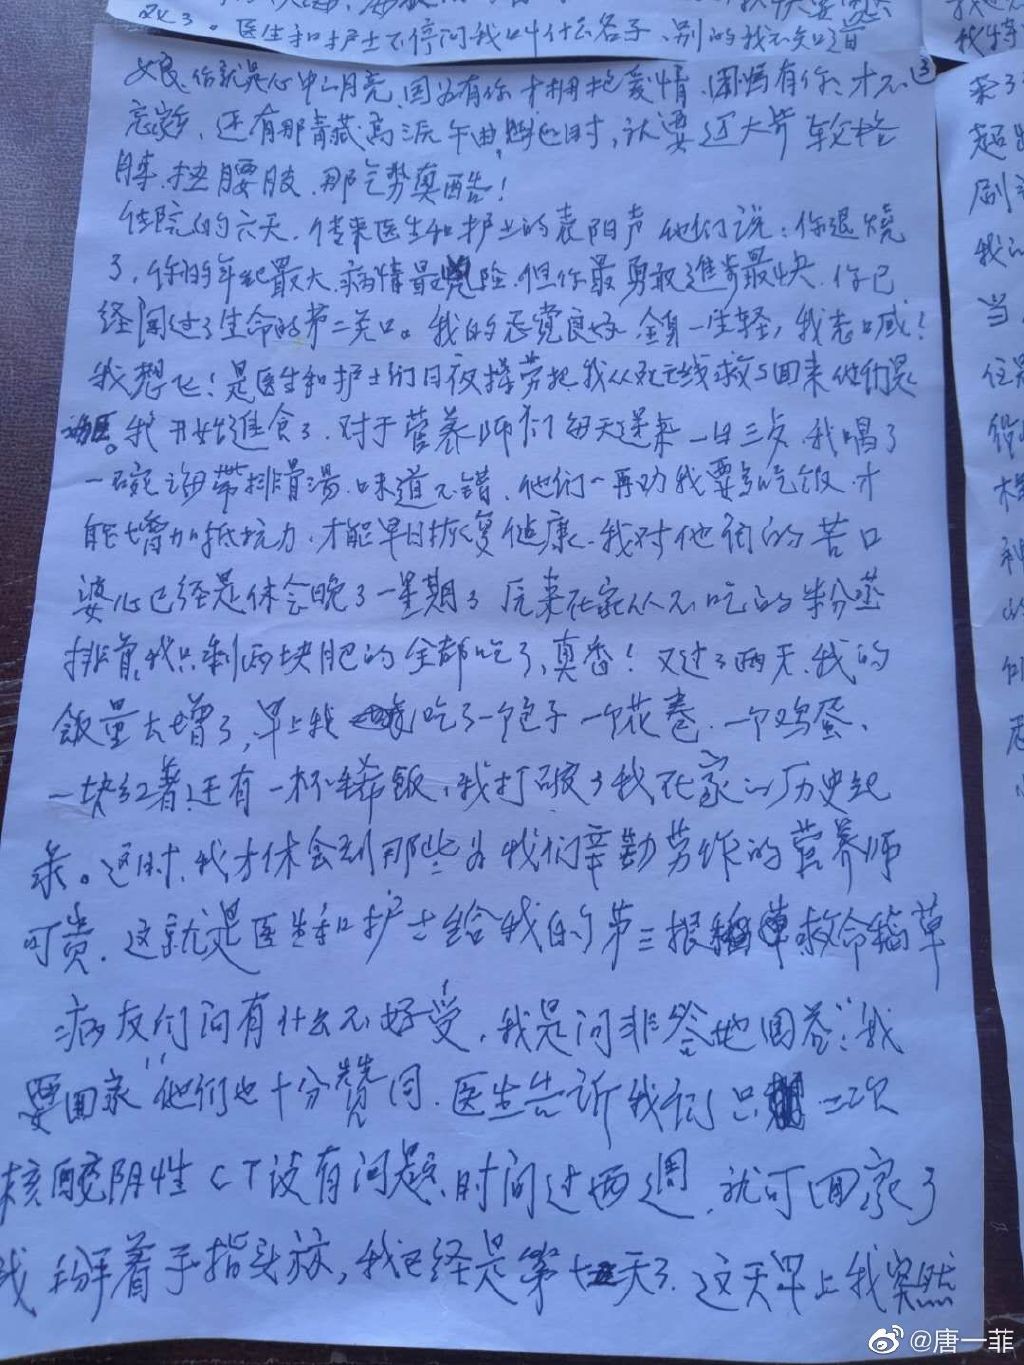 双了。医生和护士不停问我叫什么名字、别的我不知道
③
娘、你就是心中的月亮、因为有你才拥抱爱情、因为有你、才不
忘家乡、还有那青藏高 时，认要迈大步
扭腰肢、那气势真酷！
住院的六天、传来医生和护士的表阳声 他们说：你退烧
了，你的年纪最大、病情最 险、但你最勇敢進步最快、你已
经闯过了生命的第二关口。我的感觉良好 全身一生轻，我想喊！
我想飞！是医生和护士们日夜操劳把我从死亡线救了回来他们是
我开始進食了、对于营养师们每天送来一日三歺、我喝了
一碗海带排骨湯、味道不错、他们一再劝我要多吃饭、才
能增加抵抗力、才能早日恢复健康、我对他们的苦口
婆心已经是体会晚了一星期了 原来在家从不吃的粉蒸
排骨、我只剩两块肥的全部吃了，真香！又过了两天、我的
飯量大增了，早上我 吃了一个包子一个花卷、一个鸡蛋、
一块红薯、还有一杯稀飯、我打破了我在家的历史纪
录。这时、我才体会到那些为我们辛勤劳作的营养师
可贵、这就是医生和护士给我的第三根 救命稻草
病友们问有什么不好受，我是问非答地回答：“我
要回家”他们也十分赞同、医生告诉我们只 二次
核酸阴性CT没有问题、时间过两週、就可回家了
我掰着手指头 ，我已经是第 天了、这天早上我突然
我
我特
来了
超
刷
我
当
住
给
@唐一菲